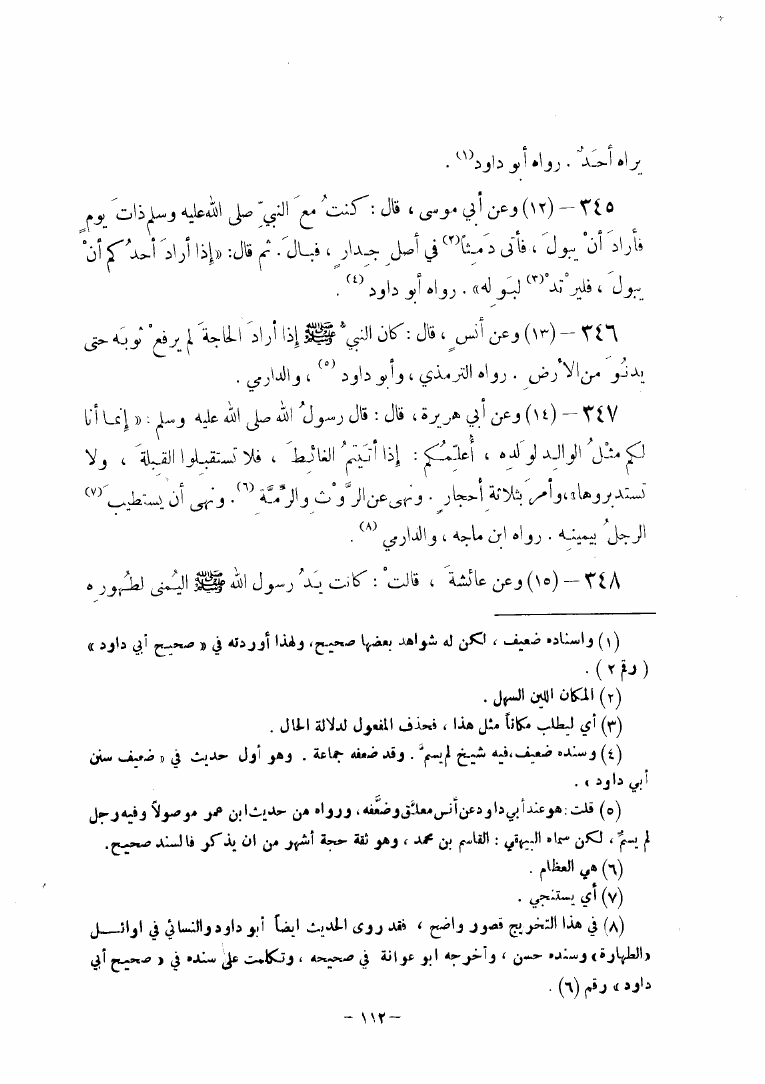 يراه أحَدٌ . رواه أبو داود(١) .
٣٤٥ – (١٢) وعن أبي موسى ، قال : كنتُ معَ النبيِّ صلى الله عليه وسلم ذاتَ يومٍ
فأرادَ أنْ يبولَ ، فأتى دَمِثاً(٢) في أصلِ جِدارٍ ، فبالَ . ثم قال : «إذا أرادَ أحدُكم أنْ
يبولَ ، فليرْتدْ(٣) لبَولِه» . رواه أبو داود(٤) .
٣٤٦ – (١٣) وعن أنسٍ ، قال : كان النبيُّ ﷺ إذا أرادَ الحاجةَ لم يرفعْ ثوبَه حتى
يدنُوَ من الأرضِ . رواه الترمذي ، وأبو داود(٥) ، والدارمي .
٣٤٧ – (١٤) وعن أبي هريرة ، قال : قال رسولُ الله صلى الله عليه وسلم : « إنما أنا
لكم مثلُ الوالدِ لولَدِه ، أُعلِّمُكم : إذا أتَيتمُ الغائِطَ ، فلا تستقبِلوا القِبلةَ ، ولا
تستدبروها» ، وأمرَ بثلاثةِ أحجارٍ . ونهى عن الرَّوْثِ والرِّمَّة(٦) . ونهى أن يستطيبَ(٧)
الرجلُ بيمينِه . رواه ابن ماجه ، والدارمي(٨) .
٣٤٨ – (١٥) وعن عائشةَ ، قالتْ : كانت يَدُ رسول الله ﷺ اليُمنى لطُهورِه
(١) وإسناده ضعيف ، لكن له شواهد بعضها صحيح، ولهذا أوردته في « صحيح أبي داود »
( رقم ٢ ) .
(٢) المكان اللين السهل .
(٣) أي ليطلب مكاناً مثل هذا ، فحذف المفعول لدلالة الحال .
(٤) وسنده ضعيف ، فيه شيخ لم يسمَّ . وقد ضعفه جماعة . وهو أول حديث في « ضعيف سنن
أبي داود » .
(٥) قلت : هو عند أبي داود عن أنس معلق وضعَّفه ، ورواه من حديث ابن عمر موصولاً وفيه رجل
لم يسمَّ ، لكن سماه البيهقي : القاسم بن محمد ، وهو ثقة حجة أشهر من ان يذكر فالسند صحيح .
(٦) هي العظام .
(٧) أي يستنجي .
(٨) في هذا التخريج قصور واضح ، فقد روى الحديث ايضاً أبو داود والنسائي في اوائل
«الطهارة» وسنده حسن ، وأخرجه ابو عوانة في صحيحه ، وتكلمت على سنده في « صحيح أبي
داود » رقم (٦) .
– ١١٢ –